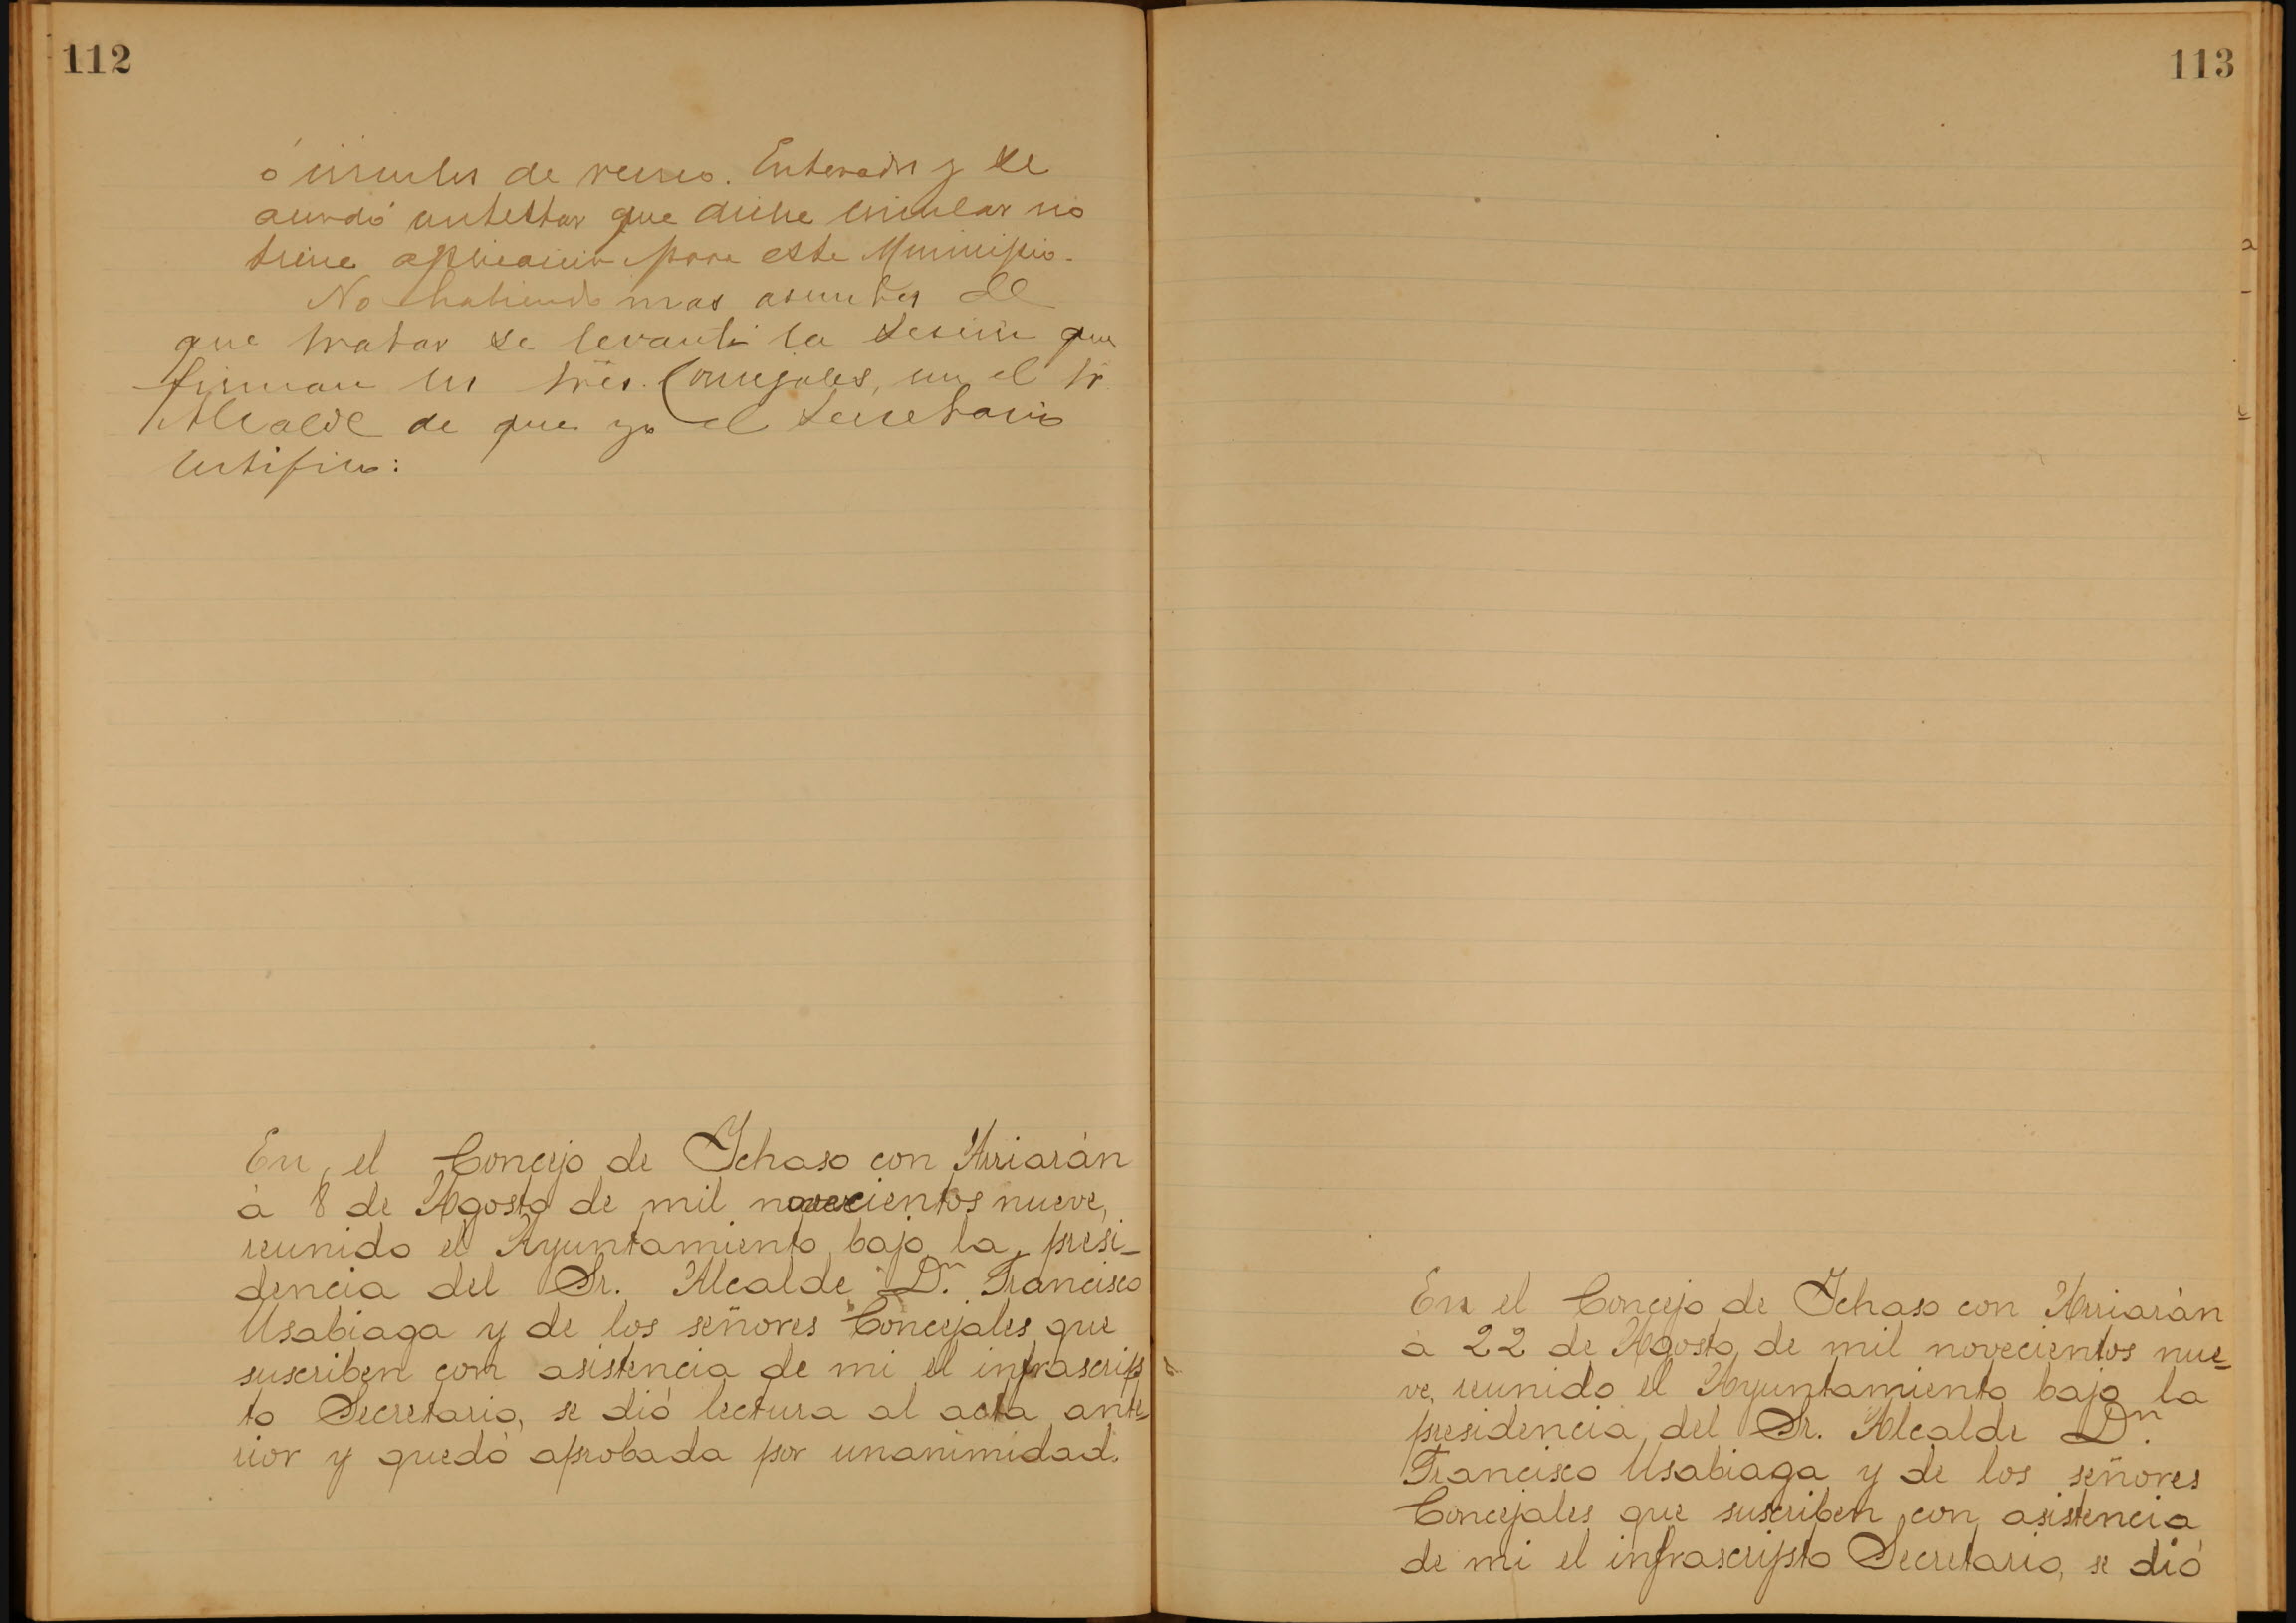 112
ó circulos de recreo. Enterados y se
acordó contestar que dicha circular no
tiene aplicación para este Municipio.
No habiendo mas asuntos de
que tratar se levantó la sesión que
firman los Sres. Concejales, con el Sr
Alcalde de que yo el Secretario
certifico:
En el Concejo de Ichaso con Arriarán
á 8 de Agosto de mil novecientos nueve,
reunido el Ayuntamiento bajo la presi-
dencia del Sr. Alcalde Dn. Francisco
Usabiaga y de los señores Concejales que
suscriben con asistencia de mi el infrascrip-
to Secretario, se dió lectura al acta ante-
rior y quedó aprobada por unanimidad.
113
En el Concejo de Ichaso con Arriarán
á 22 de Agosto de mil novecientos nue-
ve, reunido el Ayuntamiento bajo la
presidencia del Sr. Alcalde Dn.
Francisco Usabiaga y de los señores
Concejales que suscriben con asistencia
de mi el infrascripto Secretario, se dió